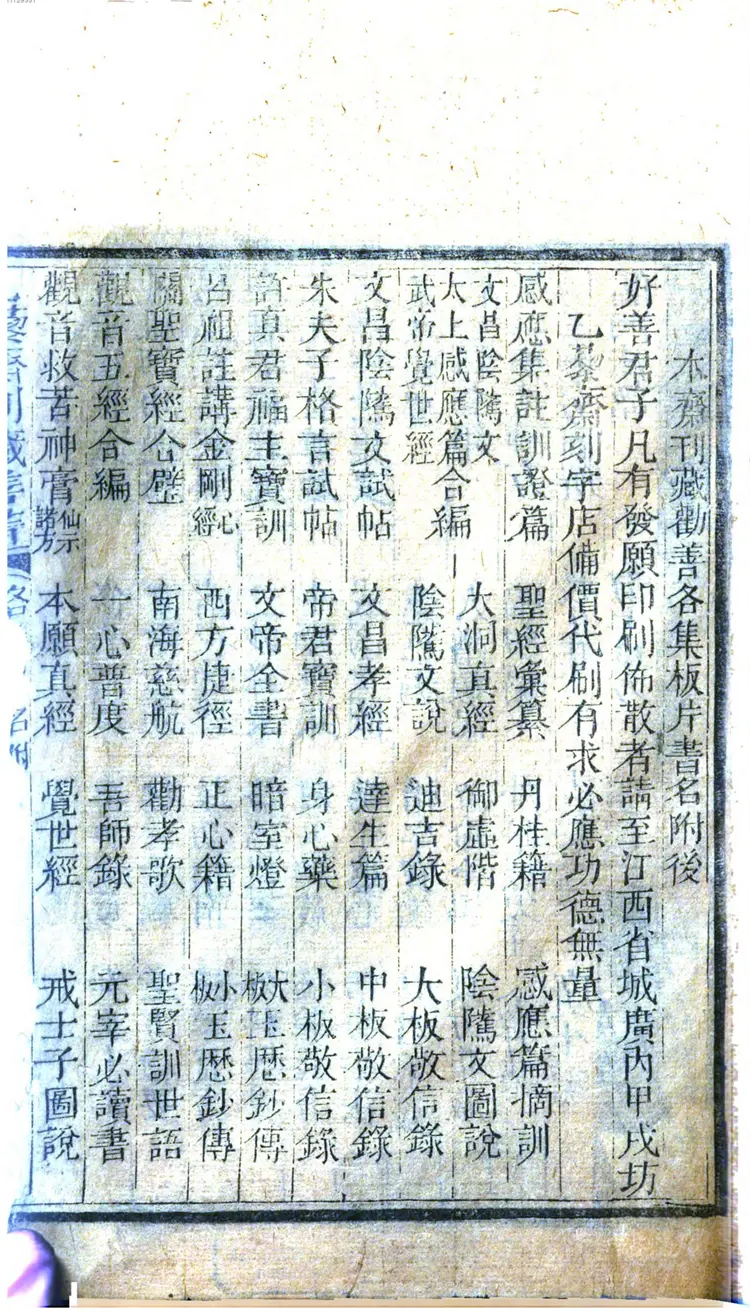 本齋刊藏勸善各集板片書名附後
好善君子凡有發願印刷佈散者請至江西省城廣丙甲戌坊
乙藜齋刻字店備價代刷有求必應功德無量
感應集註訓證篇 聖經彙纂 丹桂籍 感應篇摘訓
文昌陰隲文
太上感應篇合編 大洞真經 御虛階 陰隲文圖說
武帝覺世經 陰隲文說 迪吉錄 大板敬信錄
文昌陰隲文試帖 文昌孝經 達生篇 中板敬信錄
朱夫子格言試帖 帝君寶訓 身心藥 小板敬信錄
許真君福主寶訓 文帝全書 暗室燈 大板玉歷鈔傳
呂祖註講金剛心經 西方捷徑 正心籍 小板玉歷鈔傳
關聖寶經合璧 南海慈航 勸孝歌 聖賢訓世語
觀音五經合編 一心普度 吾師錄 元宰必讀書
觀音救苦神膏仙示諸方 本願真經 覺世經 戒士子圖說
藜齋刊藏善書